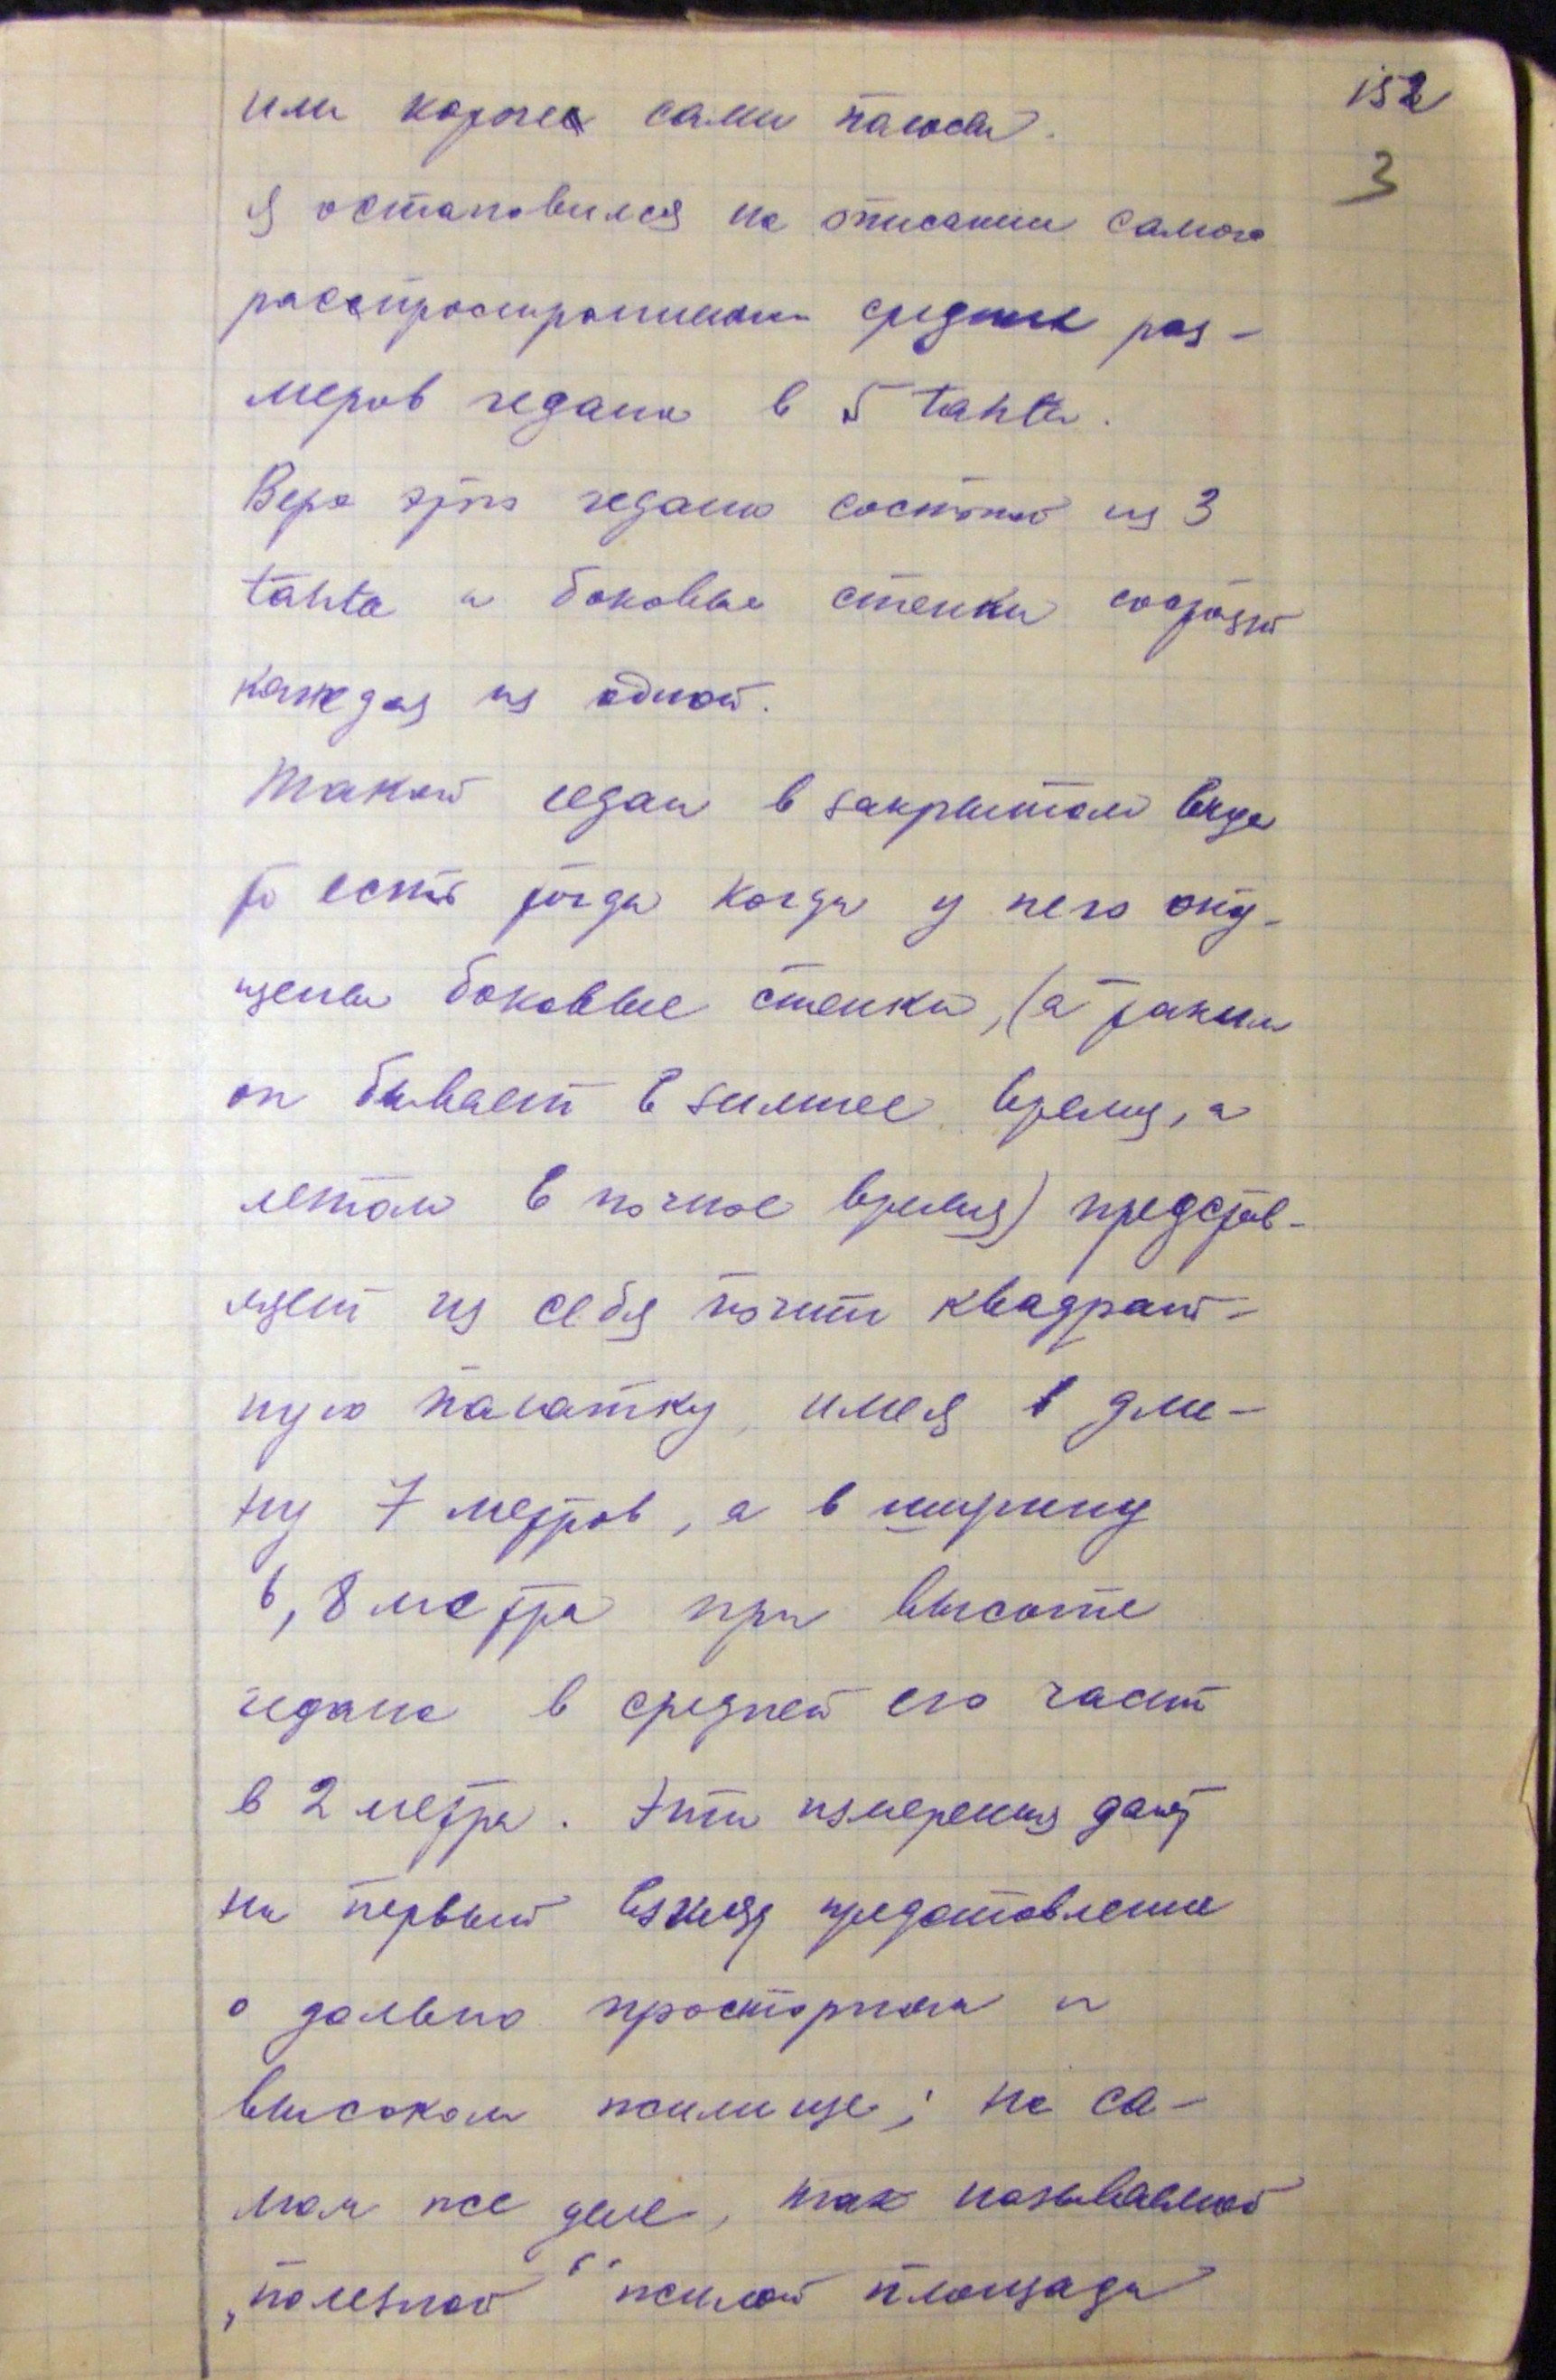 152
3
или короче сами полосы.
Я остановился на описании самого
расспространенного средних раз-
меров чедана в 5 tahta.
Верх этого чедана состоит из 3
tahta а боковые стенки состоят
каждая из одной.
Такой чедан в закрытом виде
то есть тогда когда у него опу-
щены боковые стенки, (а таким
он бывает в зимнее время, а
летом в ночное время) представ-
ляет из себя почти квадрат-
ную палатку, имея в дли-
ну 7 метров, а в ширину
6,8 метра при высоте
чедана в средней его части
в 2 метра. Эти измерения дают
на первый взгляд представление
о довольно просторном и
высоком жилище; на са-
мом же деле, так называемой
„полезной“ жилой площади